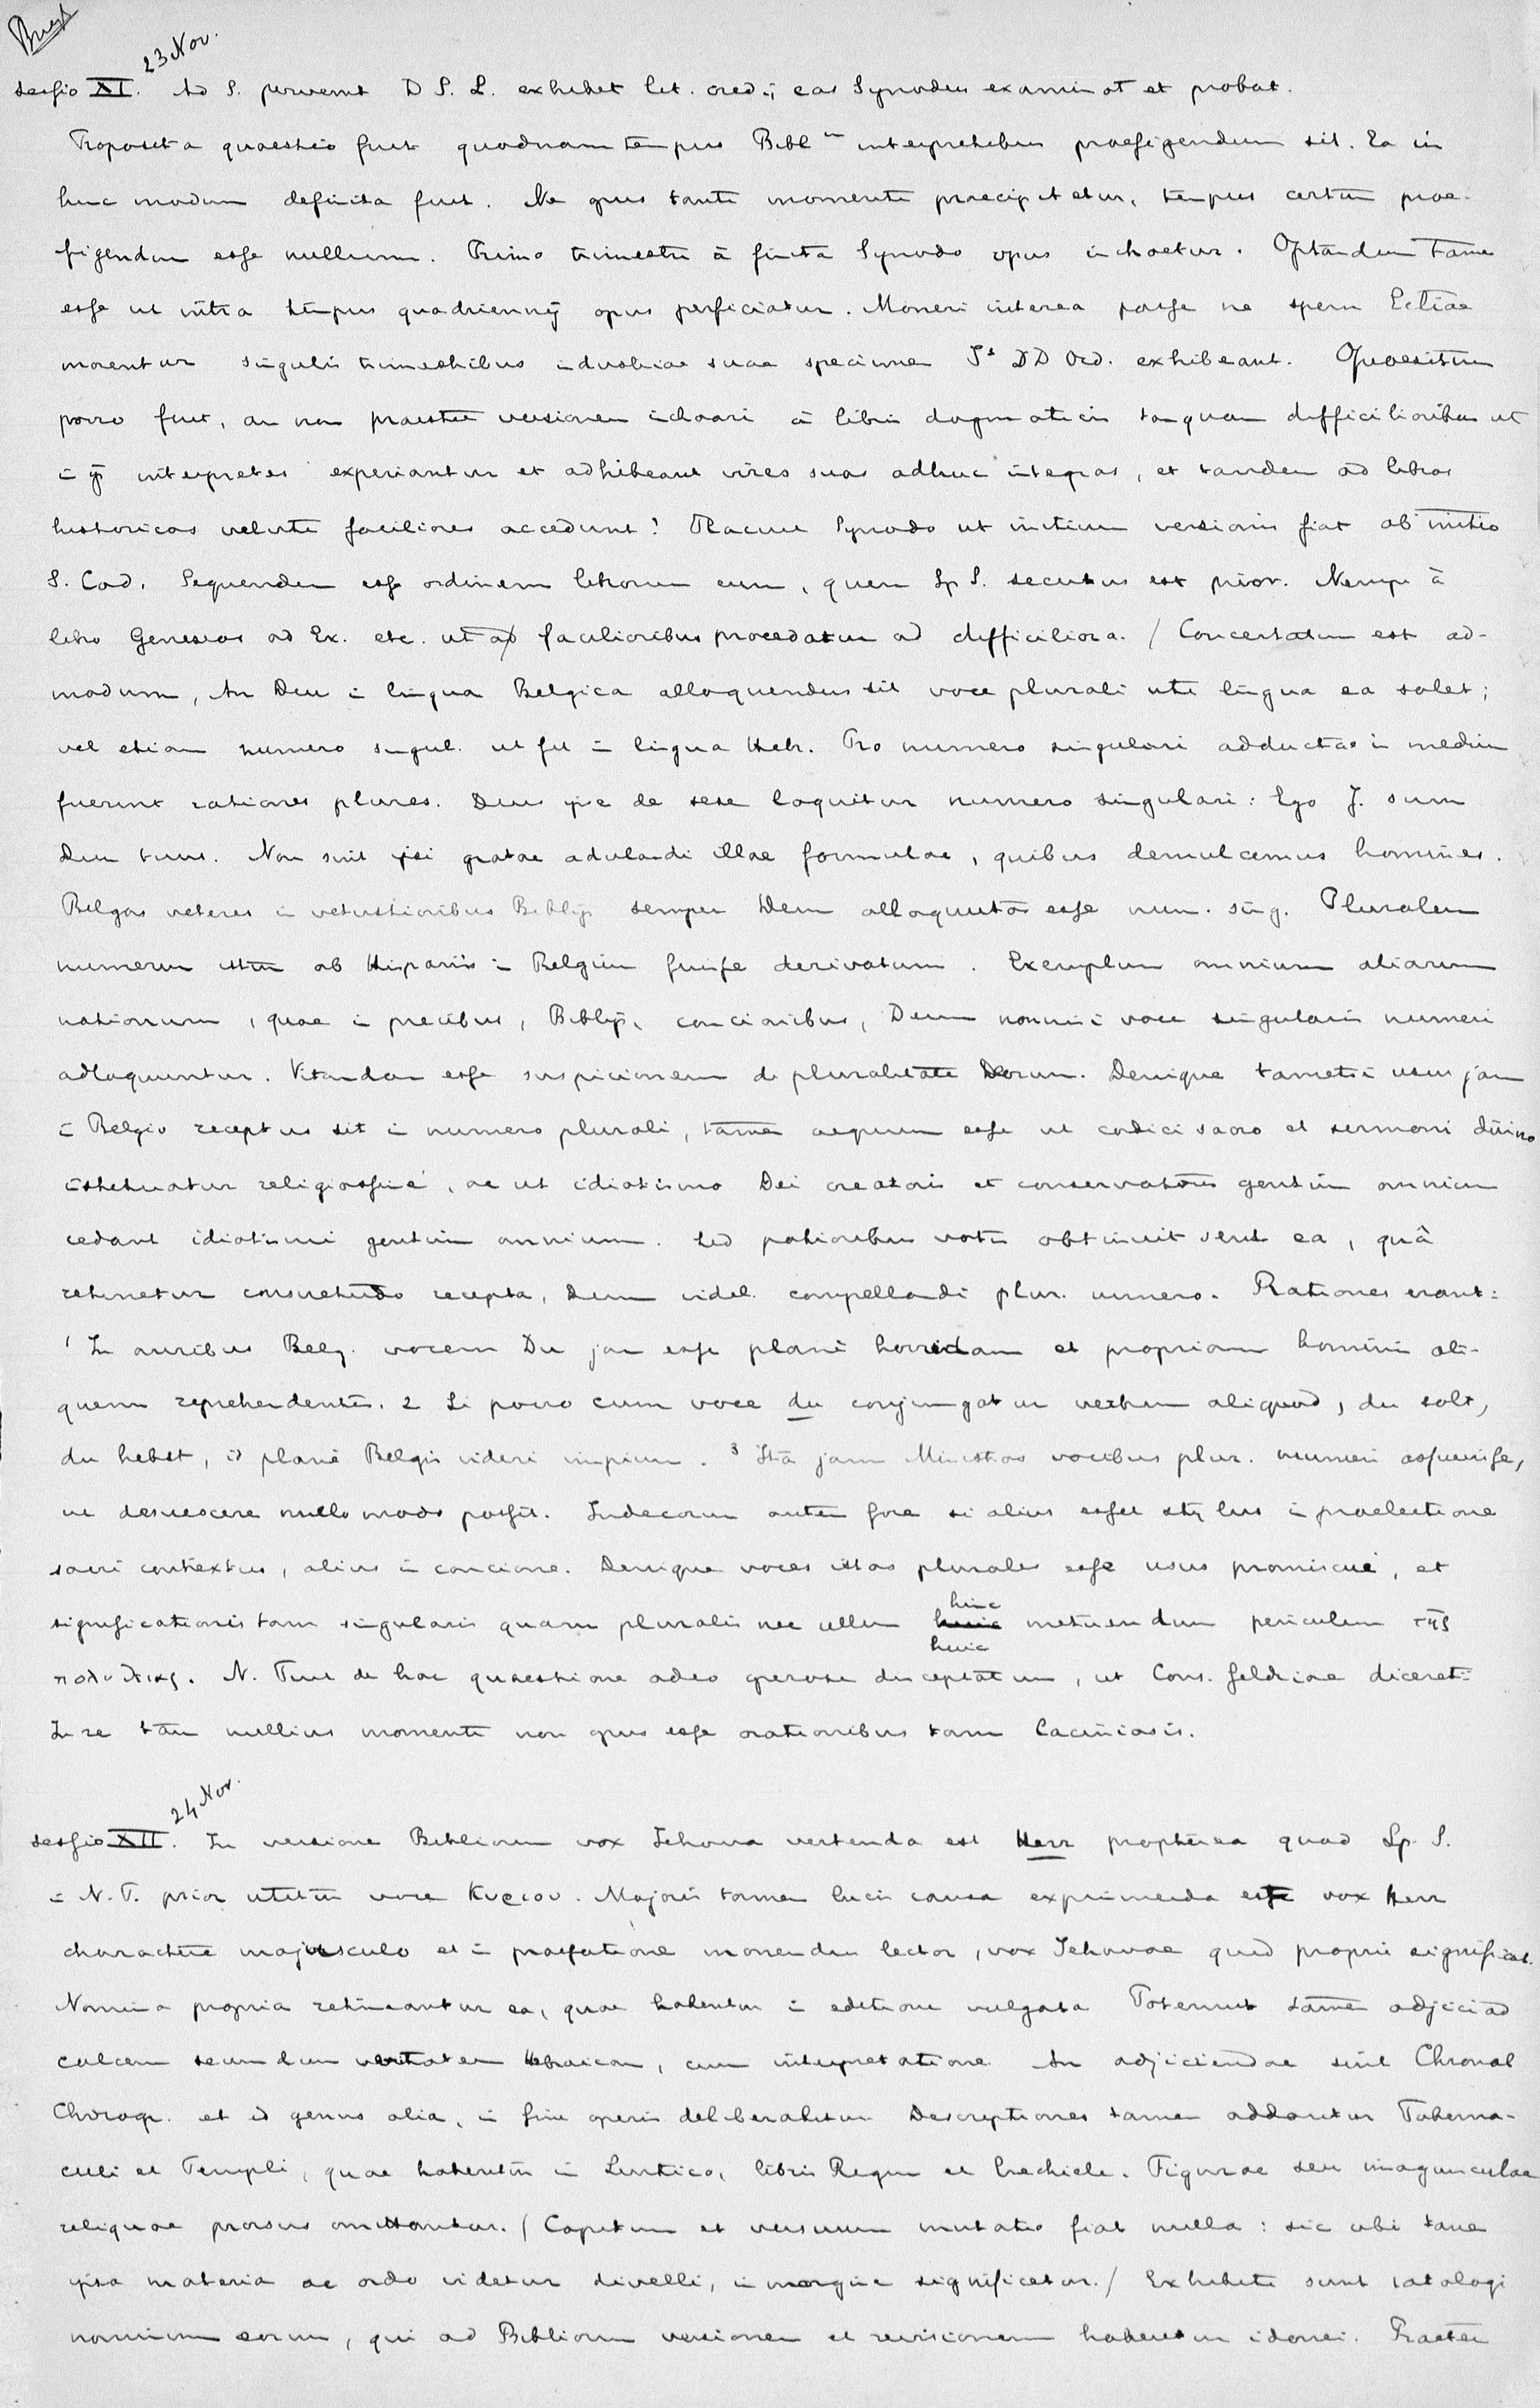 23 Nov.
sessio XI. Ad S. pervenit D S. L. exhibet lit. cred.; eas Synodus examinat et probat.
Proposita quaestio fuit quodnam tempus Bibl interpretibus praefigendum sit. Ea in
hunc modum definita fuit. Ne opus tanti momenti praecipitetur, tempus certum prae-
figendum esse nullum. Primo trimestri à finita Synodo opus inchoetur. Optandum tamen
esse ut intra tempus quadriennij opus perficiatur. Moneri interea posse ne spem Ecliae
morentur singulis trimestribus industriae suae specimen DD Ord. exhibeant. Quaesitum
porro fuit, an non praestet versionem inchoari à libris dogmaticis tanquam difficilioribus ut
in ijs interpretes experiantur et adhibeant vires suas adhuc integras, et tandem ad libros
historicos veluti faciliores accedant? Placuit Synodo ut initium versionis fiat ab initio
S. Cod. Sequendum esse ordinem librorum eum, quem Sp S. secutus est prior. Nempe à
libro Geneseos ad Ex. etc. ut ab facilioribus procedatur ad difficiliora. / Concertatum est ad-
modum, An Deus in lingua Belgica alloquendus sit voce plurali uti lingua ea solet;
vel etiam numero singul. ut fit in lingua Hebr. Pro numero singulari adductae in medium
fuerunt rationes plures. Deus ipse de sese loquitur numero singulari: Ego J. sum
Deus tuus. Non sunt ipsi gratae adulandi illae formulae, quibus demulcemus homines.
Belgas veteres in vetustioribus Biblijs semper Deum alloquutos esse num. sing. Pluralem
numerum istum ab Hispanis in Belgium fuisse derivatum. Exemplum omnium aliarum
nationum, quae in precibus, Biblijs, concionibus, Deum nonnisi voce singularis numeri
adloquuntur. Vitandam esse suspicionem de pluralitate Deorum. Denique tametsi usus jam
in Belgio receptus sit in numero plurali, tamen aequum esse ut codici sacro et sermoni divino
religiosissime, ac ut idiotismo Dei creatoris et conservatoris gentium omnium
cedant idiotismi gentium omnium. Sed potioribus votis obtinuit sent ea, quâ
retinetur consuetudo recepta, Deum videl. compellandi plur. numero. Rationes erant:
1 In auribus Belg. vocem Du jam esse planè horridam et propriam hominis ali-
quem reprehendentis. 2 Si porro cum voce du conjungatur verbum aliquod, du solt,
du hebst, id planè Belgis videri impium. 3 Ita jam Ministros vocibus plur. numeri assuevisse,
ut desuescere nullo modo possit. Indecorum autem fore si alius esset stylus in praelectione
sacri contextus, alius in concione. Denique voces istas plurales esse usus promiscui, et
significationis tam singularis quam pluralis nec ullum hinc metuendum periculum τῆς
huic
N. Fuit de hac quaestione adeo operose disceptatum, ut Cons. Geldriae diceret:
In re tam nullius momenti non opus esse orationibus tam laciniosis.
24 Nov.
sessio XII. In versione Bibliorum vox Jehova vertenda est Herr propterea quod Sp. S.
in N. T. prior utitur voce Κυριου. Majoris tamen lucis causa exprimenda esse vox Herr
charactere majusculo et in praefatione monendum lector, vox Jehovae quid proprie significat.
Nomina propria retineantur ea, quae habentur in editione vulgata Poterunt tamen adjici ad
calcem secundum veritatem Hebraicam, cum interpretatione An adjiciendae sint Chronol
Chorogr. et id genus alia, in fine operis deliberabitur Descriptiones tamen addantur Taberna-
culi et Templi, quae habentur in Levitico, libris Regum et Ezechiele. Figurae seu imagunculae
reliquae prorsus omittantur. / Capitum et versuum mutatio fiat nulla: sic ubi tamen
ipsa materia ac ordo videtur divelli, in margine significetur. / Exhibiti sunt catalogi
nominum eorum, qui ad Bibliorum versionem et revisionem habentur idonei. Praeter